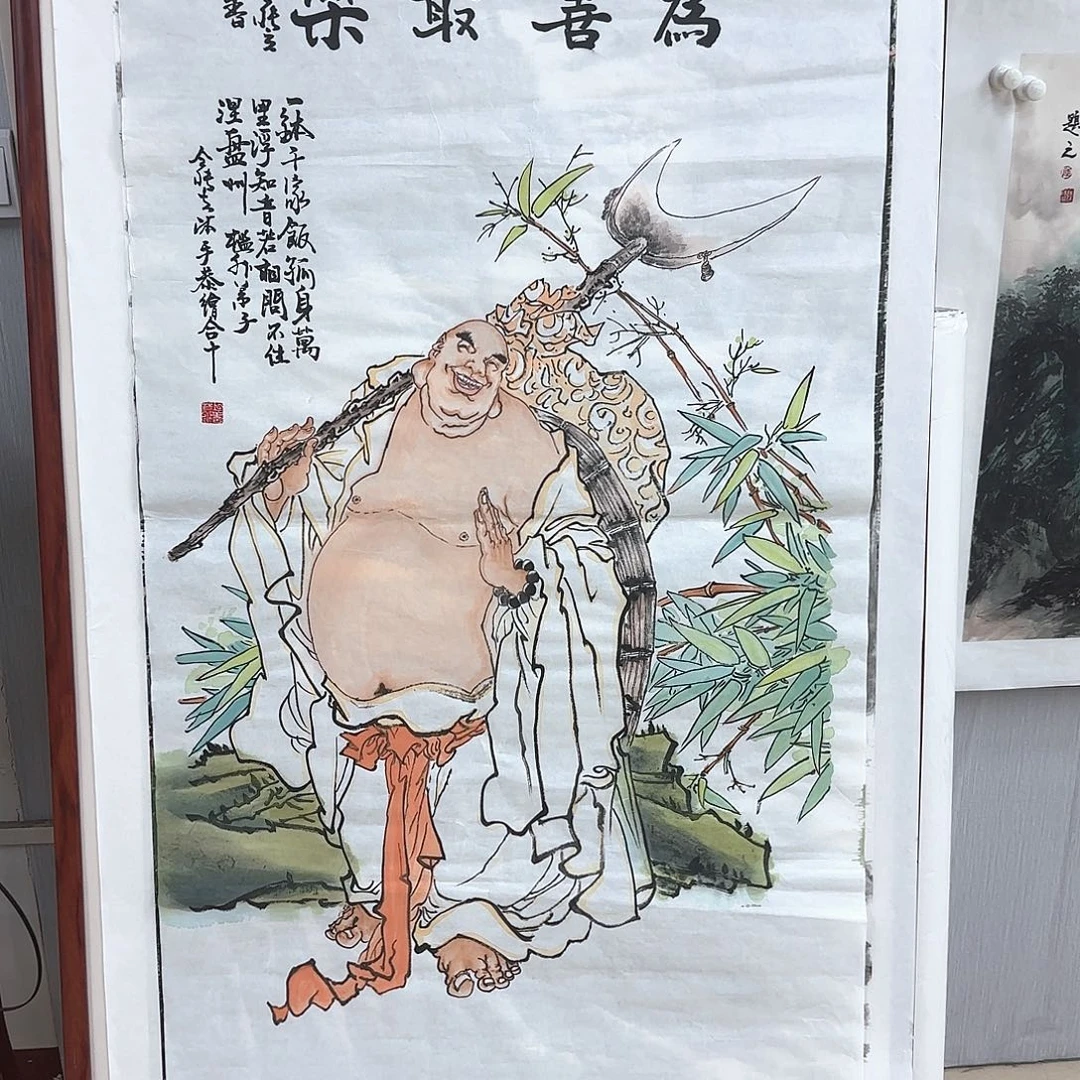 為善最樂
一鉢千家飯孤身萬
里浮知音若相問不住
涅盤州 檻外弟子
沐手恭繪合十